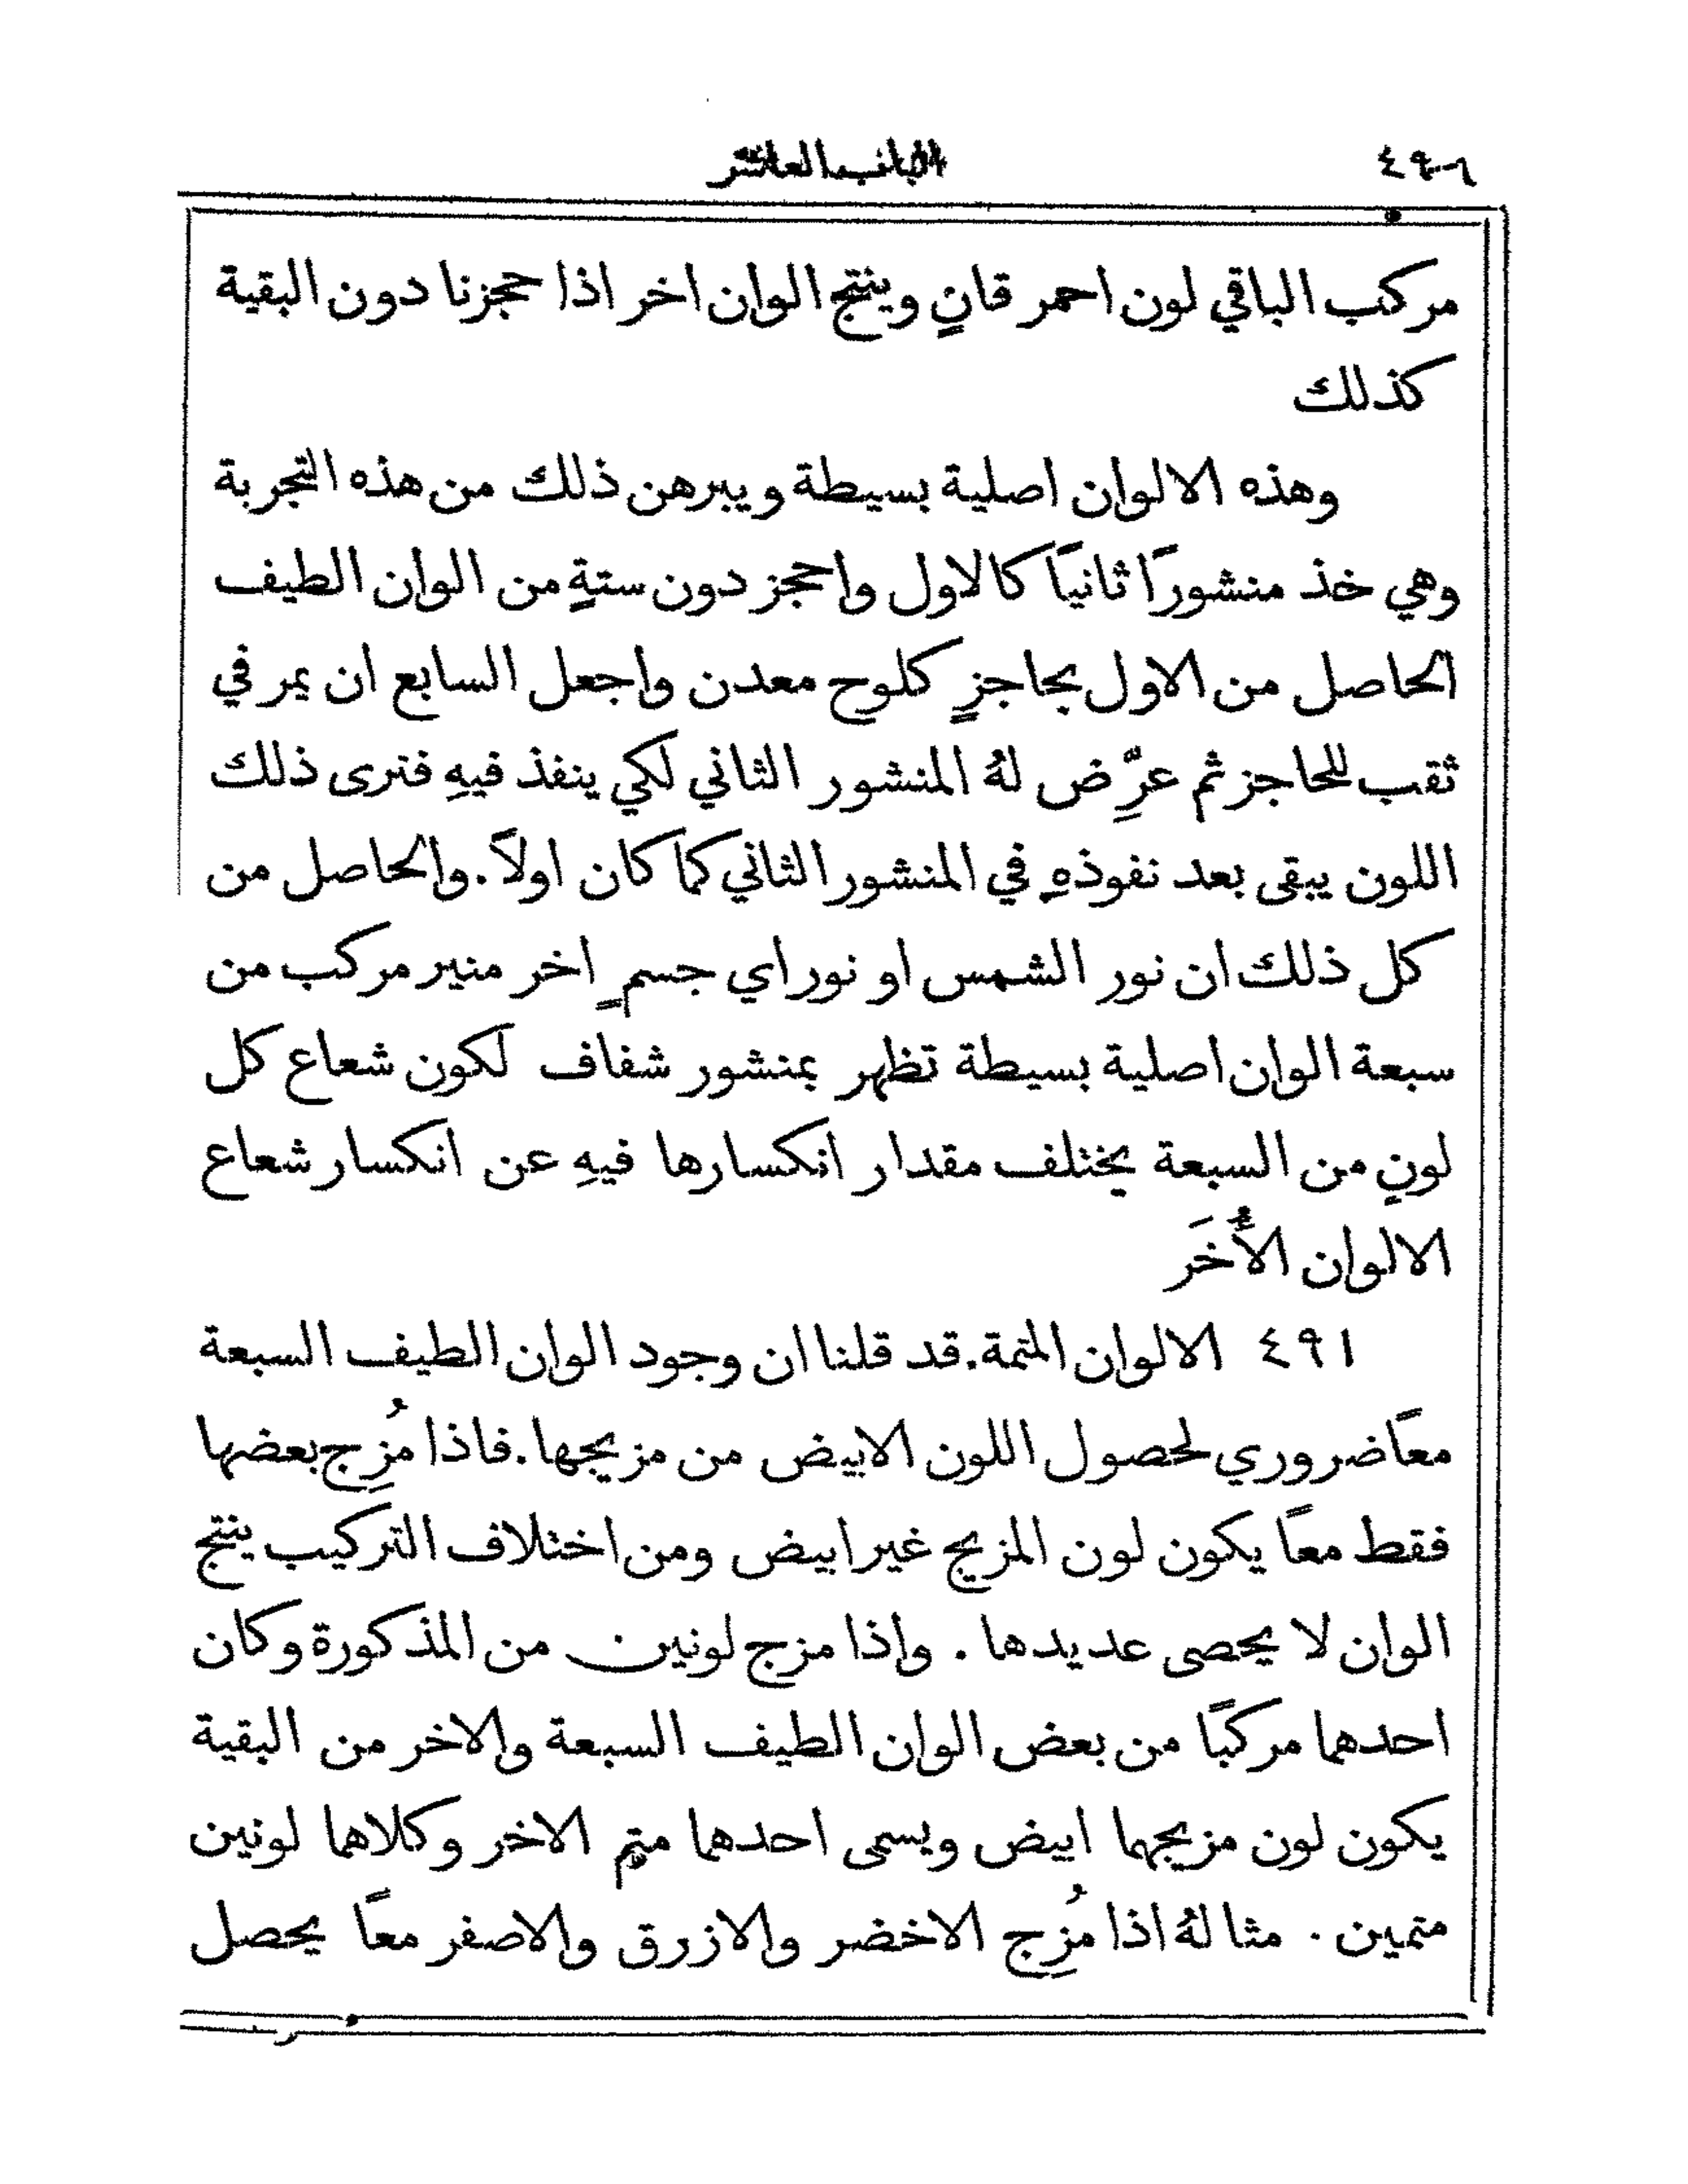 ٤٩٦ الباب العاشر
مركب الباقي لون احمر قانٍ وينتج الوان اخر اذا حجزنا دون البقية
كذلك
وهذه الالوان اصلية بسيطة ويبرهن ذلك من هذه التجربة
وهي خذ منشورًا ثانيًا كالاول واحجز دون ستةٍ من الوان الطيف
الحاصل من الاول بحاجزٍ كلوح معدن واجعل السابع ان يمر في
ثقب للحاجز ثم عرِّض لهُ المنشور الثاني لكي ينفذ فيهِ فترى ذلك
اللون يبقى بعد نفوذهِ في المنشور الثاني كما كان اولاً. والحاصل من
كل ذلك ان نور الشمس او نور اي جسمٍ اخر منير مركب من
سبعة الوان اصلية بسيطة تظهر بمنشور شفاف لكون شعاع كل
لونٍ من السبعة يختلف مقدار انكسارها فيهِ عن انكسار شعاع
الالوان الأُخَر
٤٩١ الالوان المتمة. قد قلنا ان وجود الوان الطيف السبعة
معًا ضروري لحصول اللون الابيض من مزيجها. فاذا مُزِج بعضها
فقط معًا يكون لون المزيج غير ابيض ومن اختلاف التركيب ينتج
الوان لا يحصى عديدها. واذا مزج لونين من المذكورة وكان
احدهما مركبًا من بعض الوان الطيف السبعة والاخر من البقية
يكون لون مزيجهما ابيض ويسمى احدهما متم الاخر وكلاهما لونين
متمين. مثالهُ اذا مُزِج الاخضر والازرق والاصفر معًا يحصل